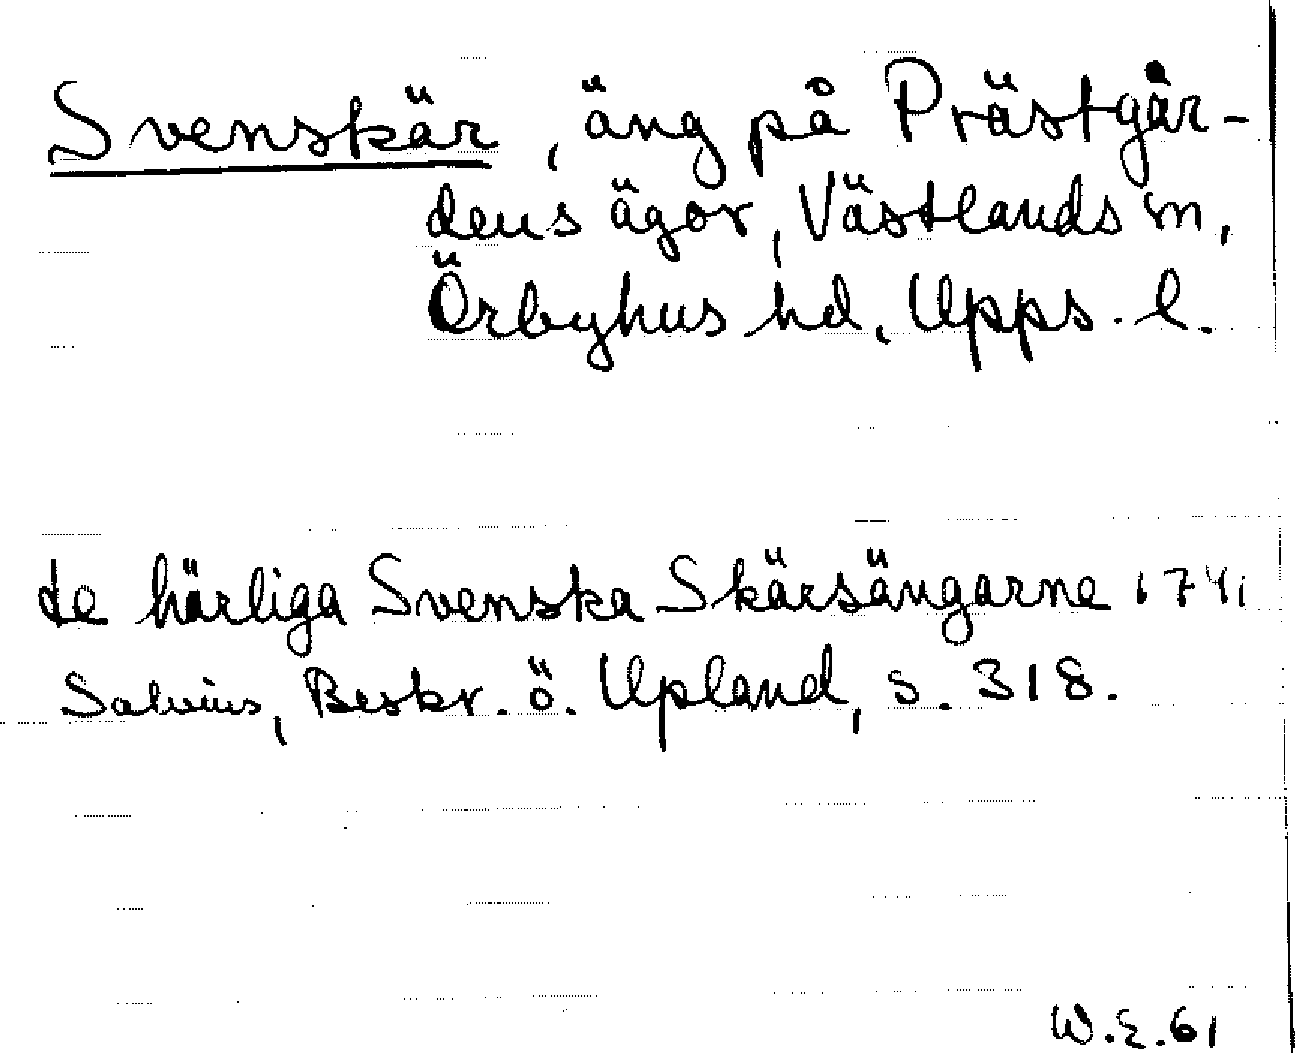 Svenskär, äng på Prästgår-
dens ägor, Västlands sn,
Örbyhus hd, Upps. l.
de härliga Svenska Skärsängarne 1741
Salvius, Beskr. ö. Upland, s. 318.
W.E.61